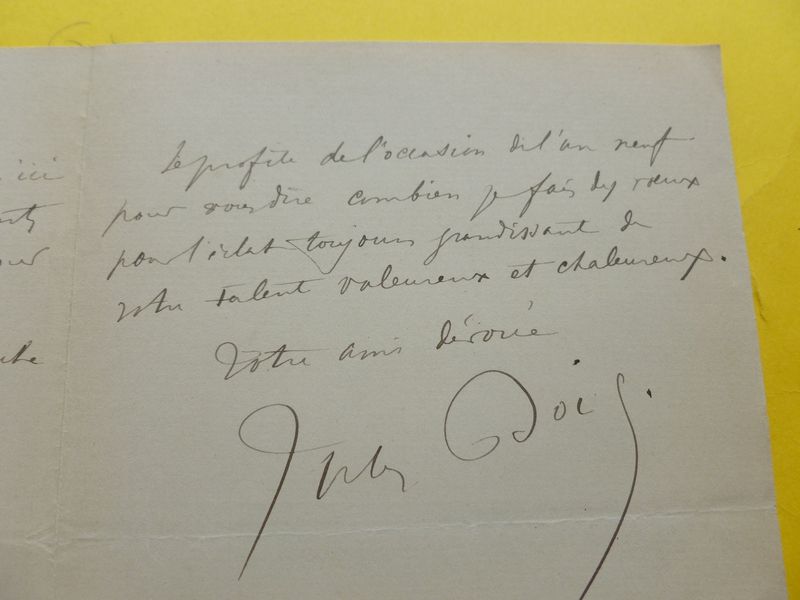 ici
Je profite de l'occasion de l'an neuf
pour vous dire combien je fais des vœux
pour l'éclat toujours grandissant de
votre talent valeureux et chaleureux.
Votre ami dévoué
Jules Bois.